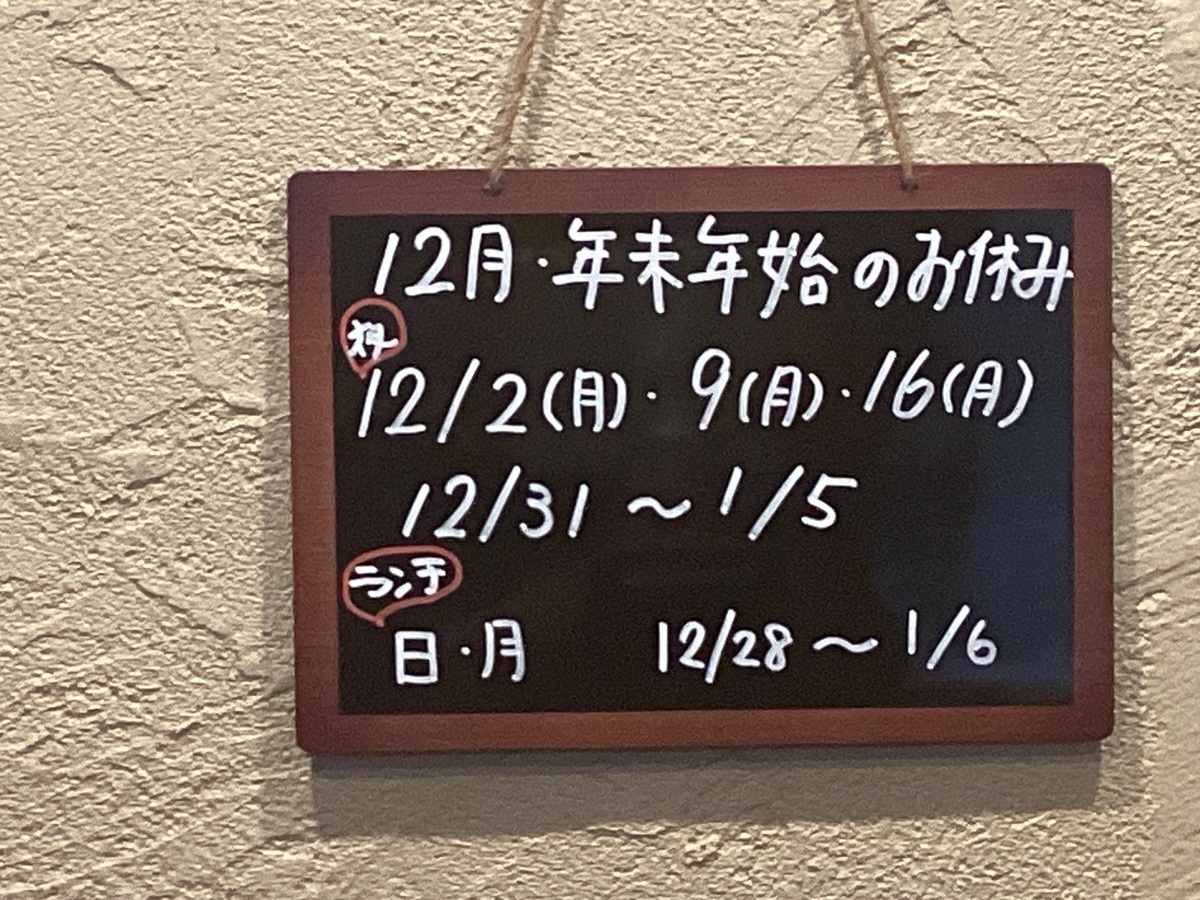 12月・年末年始のお休み
12/2(月)・9(月)・16(月)
12/31～1/5
ランチ
日・月 12/28～1/6